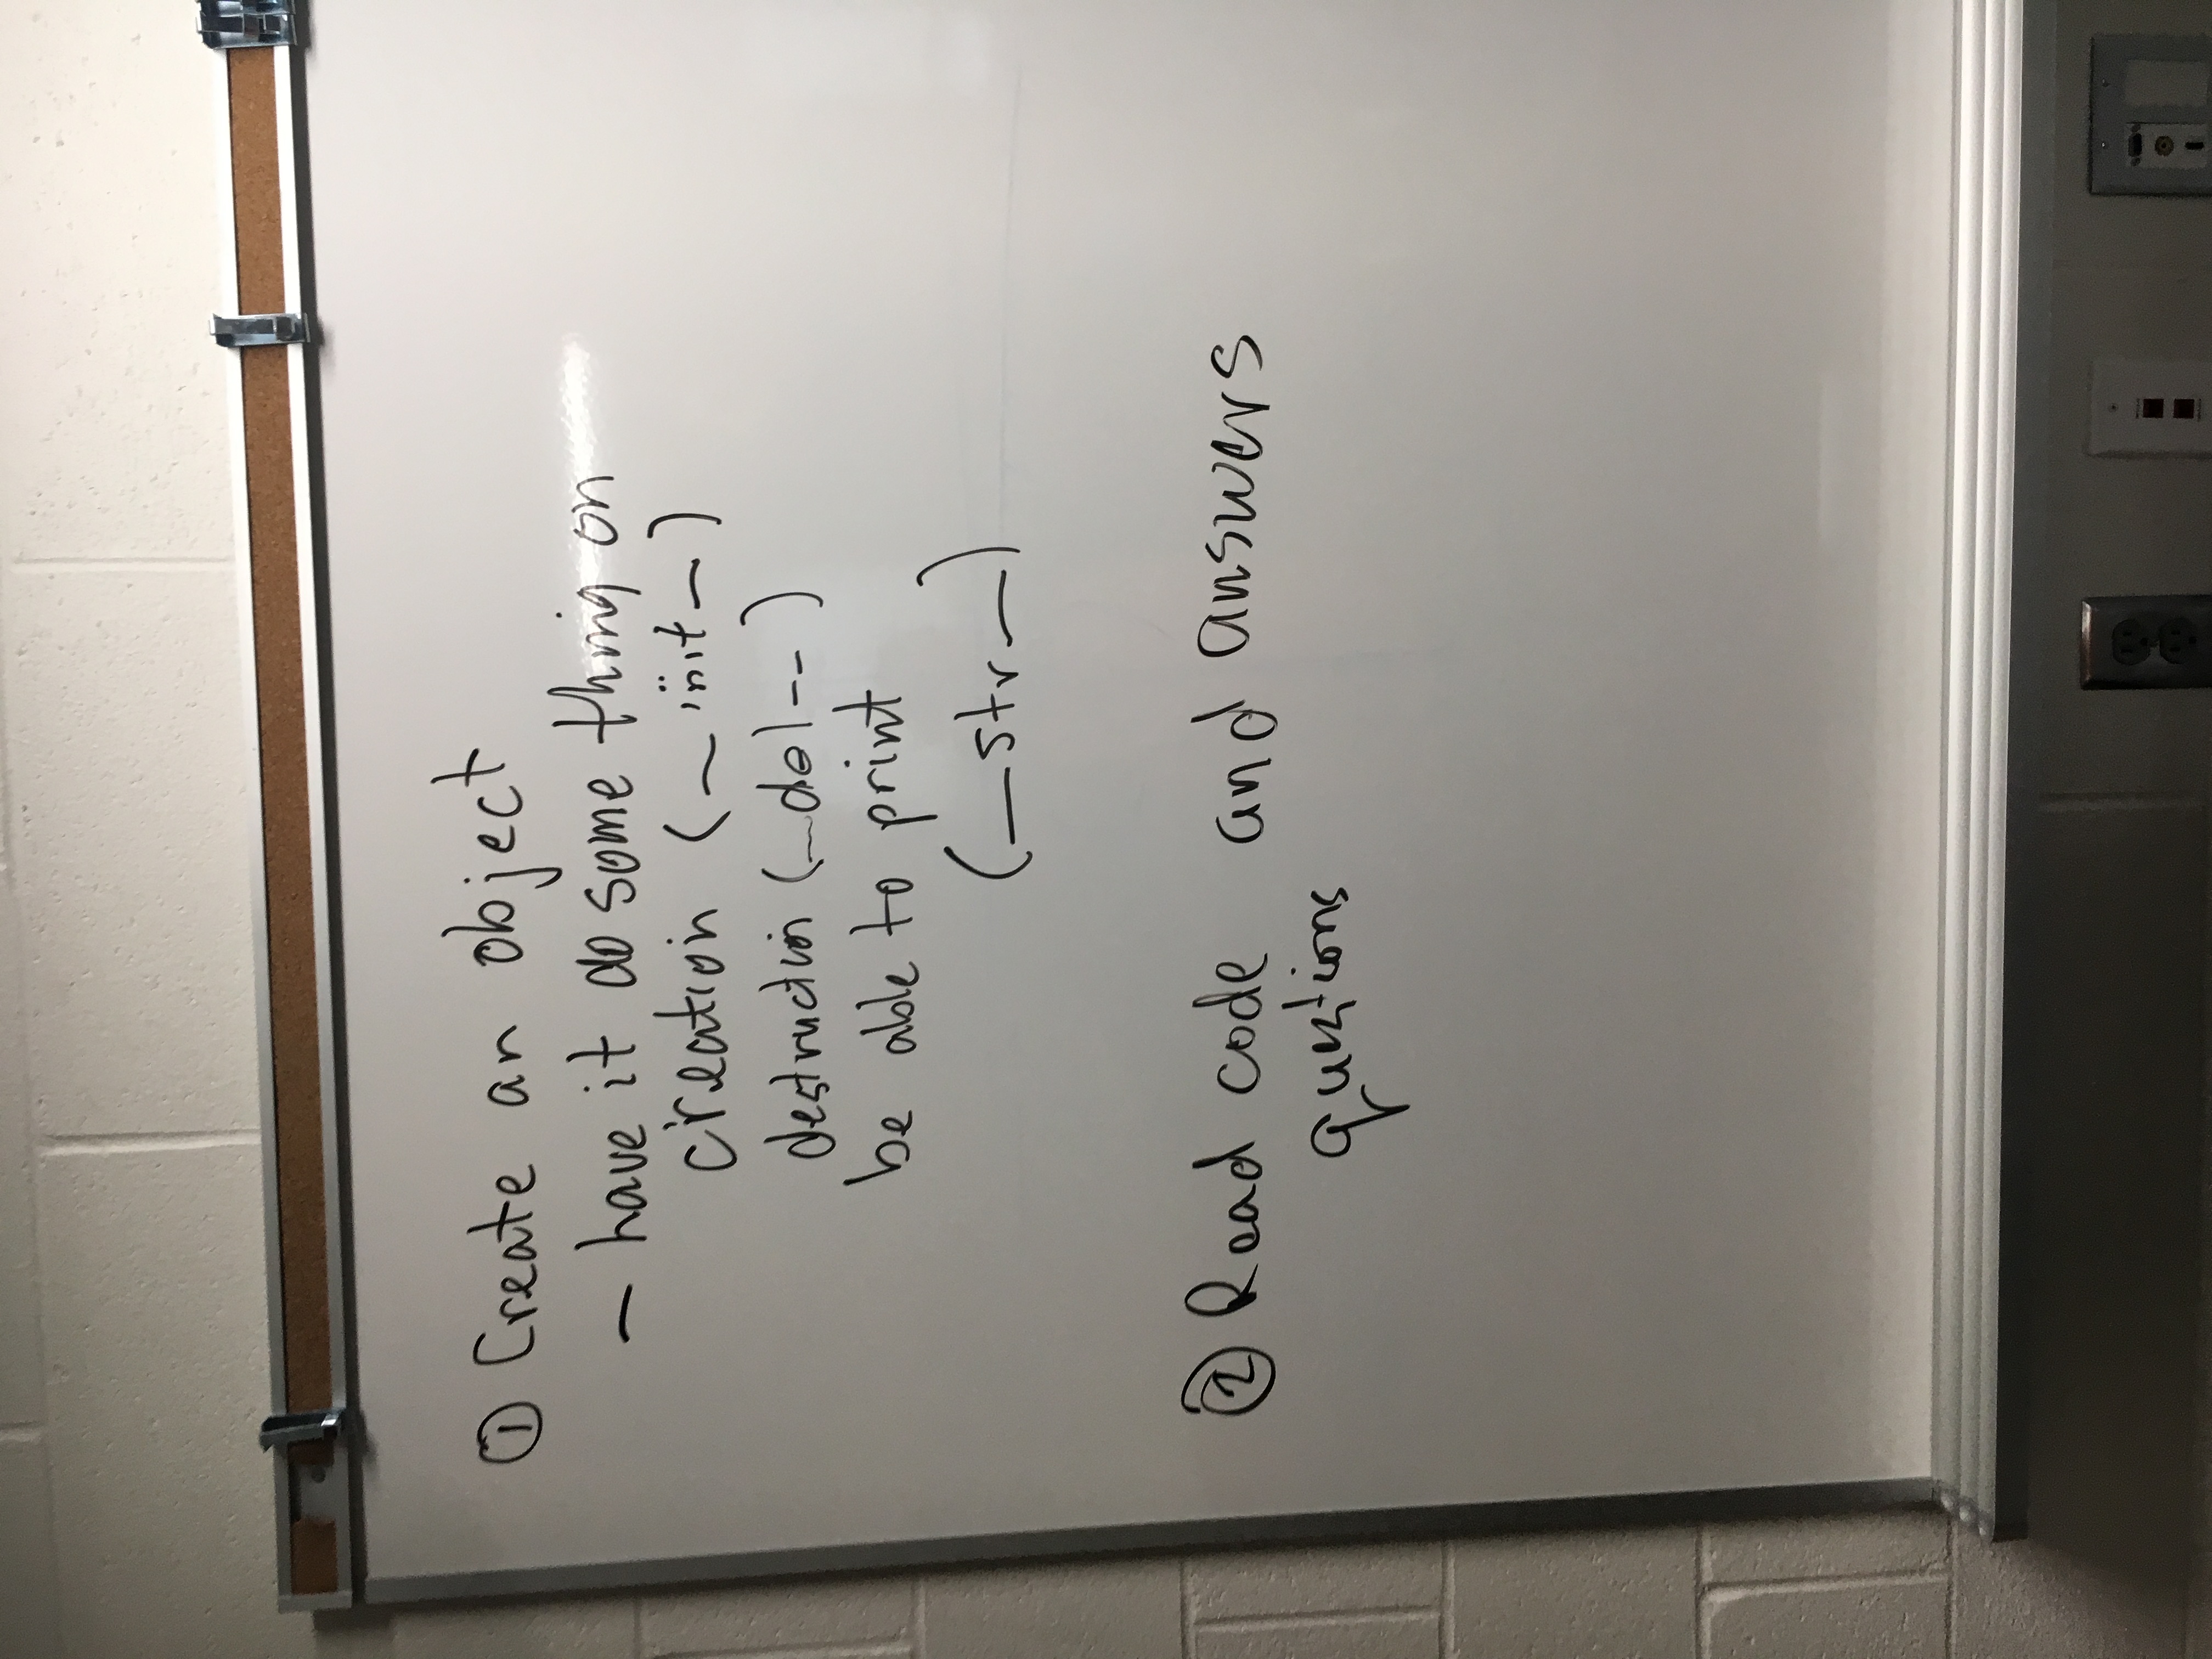 ① Create an object
- have it do some thing on
creation (_ init _)
destruction (_del--)
be able to print
(_str_)
② Read code and answers
questions